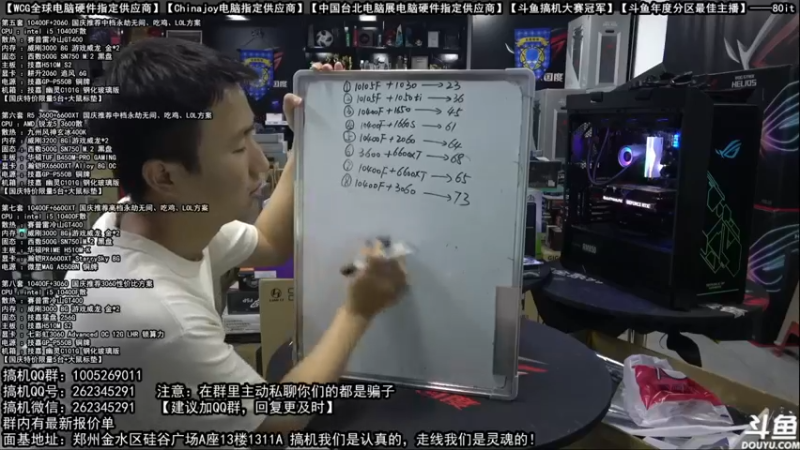 【WCG全球电脑硬件指定供应商】【Chinajoy电脑指定供应商】【中国台北电脑展电脑硬件指定供应商】【斗鱼搞机大赛冠军】【斗鱼年度分区最佳主播】——80it
第五套 10400F+2060 国庆推荐中档永劫无间、吃鸡、LOL方案
CPU : intel i5 10400F散
散热 : 赛普雷冷山GT400
内存 : 威刚3000 8G 游戏威龙 金*2
固态 : 西数500G SN750 M.2 黑盘
主板 : 技嘉H510M S2
显卡 : 耕升2060 追风 6G
电源 : 技嘉GP-P550B 铜牌
机箱 : 技嘉 幽灵C101G 钢化玻璃版
【国庆特价限量5台+大鼠标垫】
第六套 R5 3600+6600XT 国庆推荐中档永劫无间、吃鸡、LOL方案
CPU : AMD 锐龙5 3600散
散热 : 九州风神玄冰400K
内存 : 威刚3200 8G 游戏威龙*2
固态 : 西数500G SN750 M.2 黑盘
主板 : 华硕TUF B450M-PRO GAMING
【国庆特价限量5台+大鼠标垫】
第七套 10400F+6600XT 国庆推荐高档永劫无间、吃鸡、LOL方案
CPU : intel i5 10400F散
散热 : 赛普雷冷山GT400
内存 : 威刚3000 8G 游戏威龙 金*2
固态 : 西数500G SN750 M.2 黑盘
主板 : 华硕PRIME H510M-K
电源 : 微星MAG A550BN 铜牌
第八套 10400F+3060 国庆推荐3060性价比方案
CPU : intel i5 10400F散
散热 : 赛普雷冷山GT400
内存 : 威刚3000 8G 游戏威龙 金*2
主板 : 技嘉H510M S2
显卡 : 七彩虹3060 Advanced OC 12G LHR 锁算力
电源 : 技嘉GP-P550B 铜牌
机箱 : 技嘉 幽灵C101G 钢化玻璃版
【国庆特价限量5台+大鼠标垫】
① 10105F+1030→23
② 10105F+1050ti→36
③ 10400F+1650→45
④ 10400F+1660S→61
⑤ 10400F+2060→64
⑥ 3600+6600XT→68
⑦ 10400F+6600XT→65
⑧ 10400F+3060→73
HELIOS
搞机QQ群: 1005269011
搞机QQ号: 262345291 注意: 在群里主动私聊你们的都是骗子
搞机微信: 262345291 【建议加QQ群，回复更及时】
群内有最新报价单
面基地址: 郑州金水区硅谷广场A座13楼1311A 搞机我们是认真的，走线我们是灵魂的!
斗鱼
DOUYU.COM